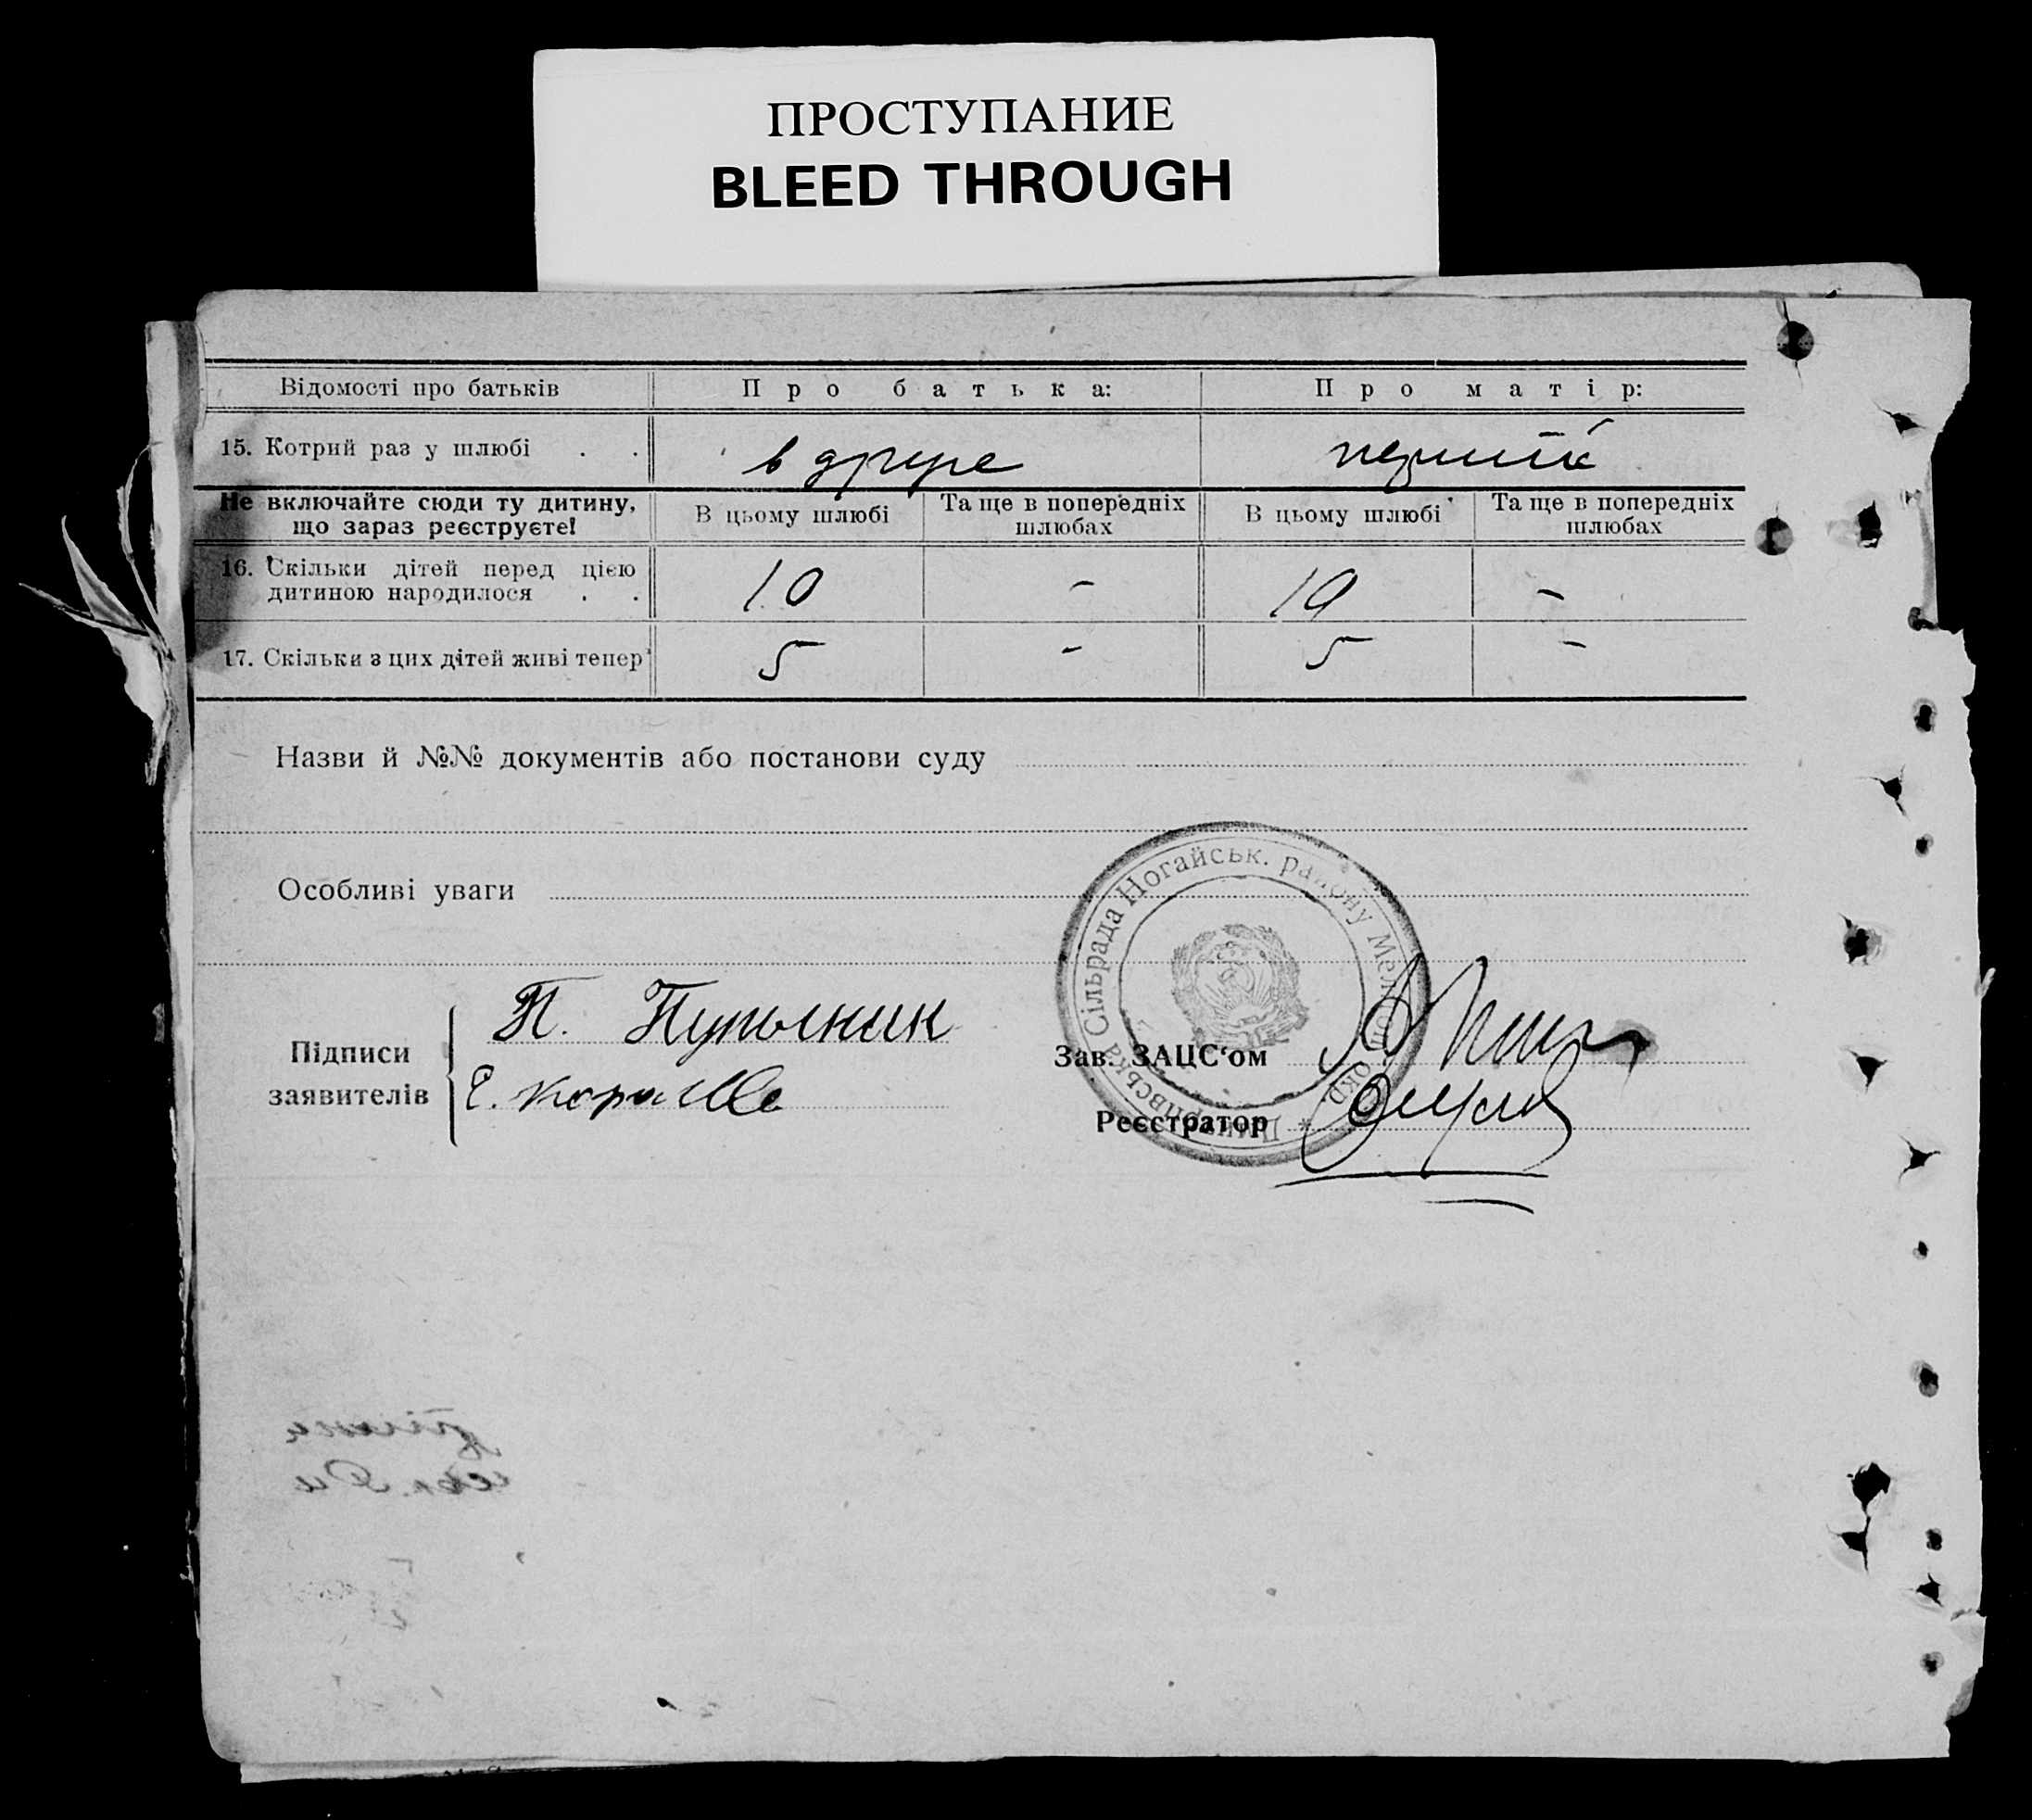 ПРОСТУПАНИЕ
BLEED THROUGH
Відомості про батьків Про батька: Про матір:
15. Котрий раз у шлюбі . . в друге
Не включайте сюди ту дитину, що зараз реєструєте! В цьому шлюбі Та ще в попередніх шлюбах В цьому шлюбі Та ще в попередніх шлюбах
16. Скільки дітей перед цією дитиною народилося . . 10 - 10 -
17. Скільки з цих дітей живі тепер 5 - 5 -
Назви й №№ документів або постанови суду
Особливі уваги
Сільрада Ногайськ. району
Підписи заявителів
П.
Зав. ЗАЦС'ом
Реєстратор